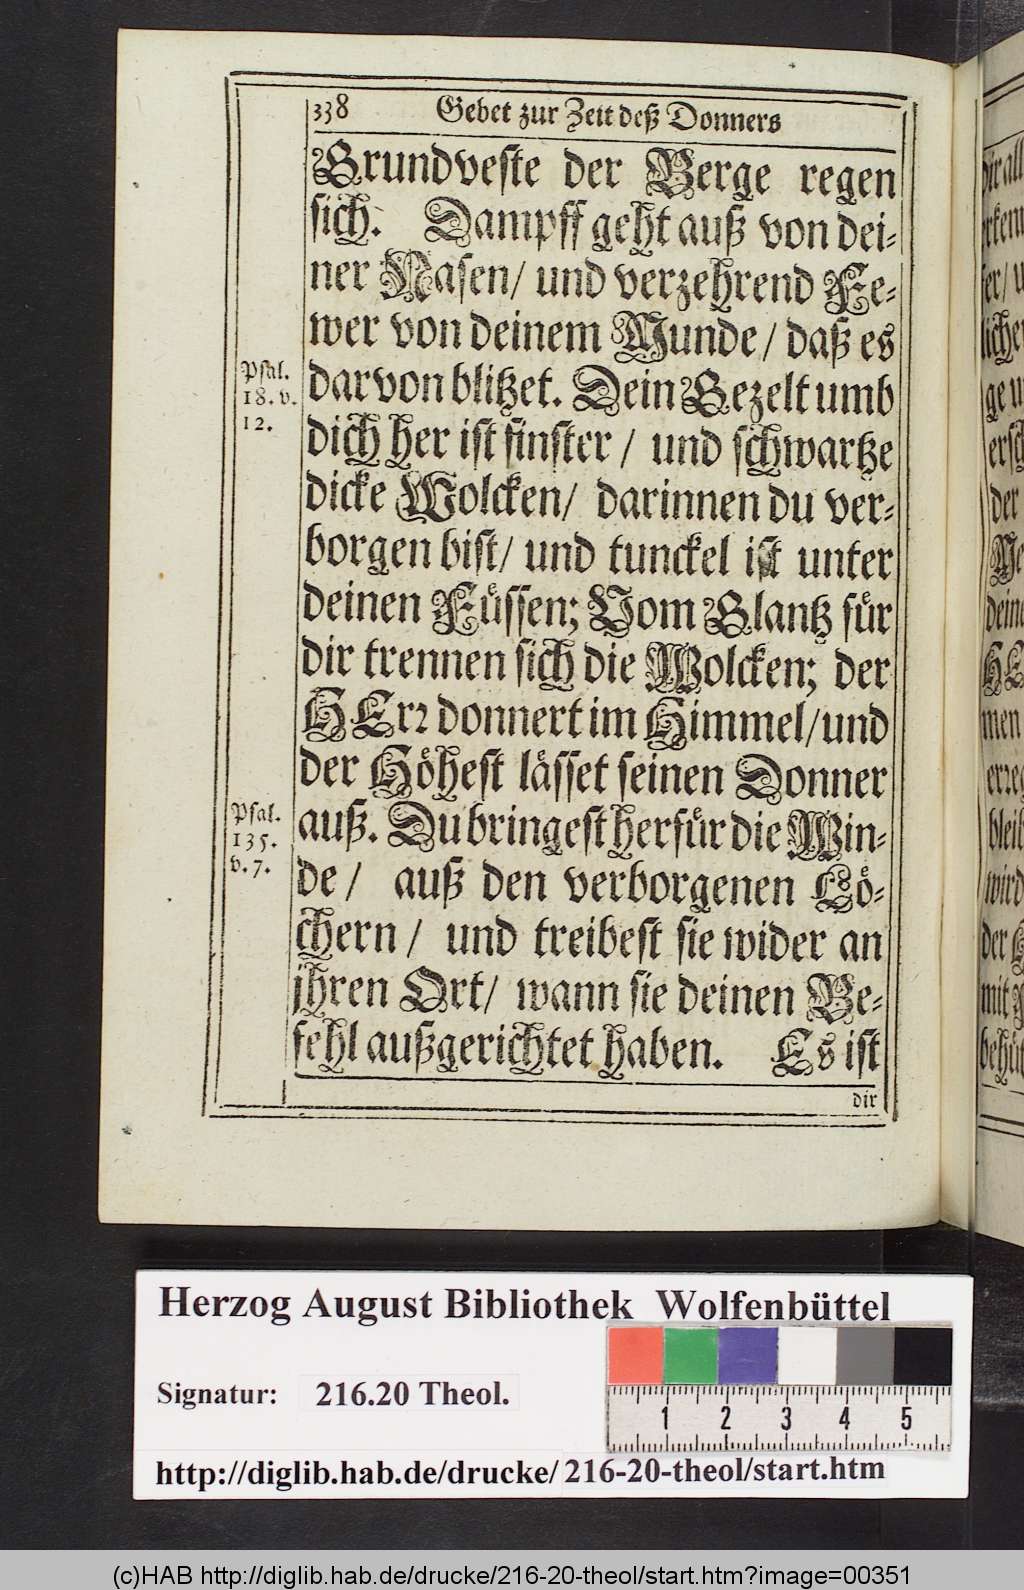 338 Gebet zur Zeit deß Donners
Grundveste der Berge regen
sich. Dampff geht auß von dei-
ner Nasen/ und verzehrend Fe-
wer von deinem Munde/ daß es
Psal. 18. v. 12.
darvon blitzet. Dein Gezelt umb
dich her ist finster/ und schwartze
dicke Wolcken/ darinnen du ver-
borgen bist/ und tunckel ist unter
deinen Füssen; Vom Glantz für
dir trennen sich die Wolcken; der
HErꝛ donnert im Himmel/und
der Höhest lässet seinen Donner
Psal. 135. v. 7.
auß. Du bringest herfür die Win-
de/ auß den verborgenen Lö-
chern/ und treibest sie wider an
jhren Ort/ wann sie deinen Be-
fehl außgerichtet haben. Es ist
dir
Herzog August Bibliothek Wolfenbüttel
Signatur: 216.20 Theol.
1 2 3 4 5
http://diglib.hab.de/drucke/216-20-theol/start.htm
(c)HAB http://diglib.hab.de/drucke/216-20-theol/start.htm?image=00351